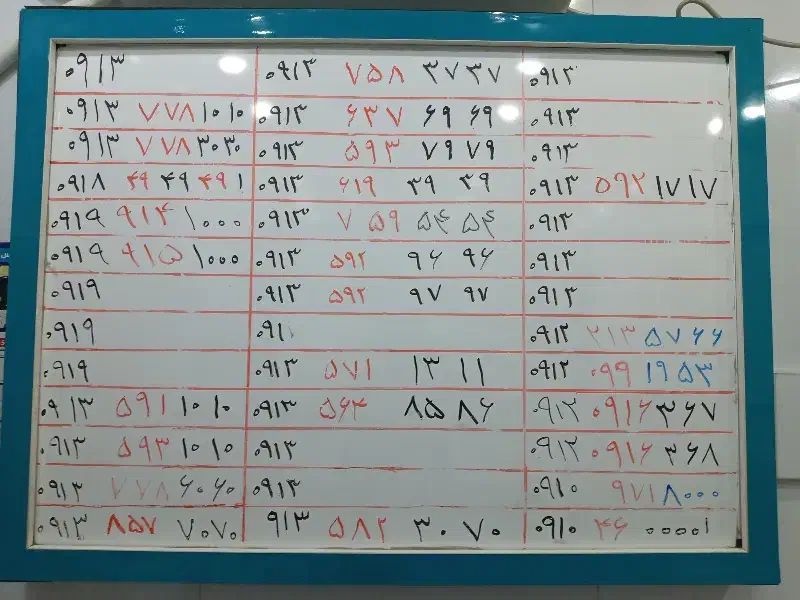 ۰۹۱۳ ۰۹۱۳ ۷۵۸ ۳۷۳۷ ۰۹۱۳
۰۹۱۳ ۷۷۸ ۱۰۱۰ ۰۹۱۳ ۶۳۷ ۶۹ ۶۹ ۰۹۱۳
۰۹۱۳ ۷۷۸ ۳۰۳۰ ۰۹۱۳ ۵۹۳ ۷۹۷۹ ۰۹۱۳
۰۹۱۸ ۴۹ ۴۹ ۴۹ ۱ ۰۹۱۳ ۶۱۹ ۳۹ ۳۹ ۰۹۱۳ ۵۹۲ ۱۷۱۷
۰۹۱۹ ۹۱۴ ۱۰۰۰ ۰۹۱۳ ۷۵۹ ۵۴ ۵۴ ۰۹۱۳
۰۹۱۹ ۹۱۵ ۱۰۰۰ ۰۹۱۳ ۵۹۲ ۹۶ ۹۶ ۰۹۱۳
۰۹۱۹ ۰۹۱۳ ۵۹۲ ۹۷ ۹۷ ۰۹۱۳
۰۹۱۹ ۰۹۱ ۰۹۱۲ ۲۱۳ ۵۷۶۶
۰۹۱۹ ۰۹۱۳ ۵۷۱ ۱۳ ۱۱ ۰۹۱۲ ۰۹۹ ۱۹۵۳
۰۹۱۳ ۵۹۱ ۱۰۱۰ ۰۹۱۳ ۵۶۴ ۸۵۸۶ ۰۹۱۲ ۰۹۱۶ ۳۶۷
۰۹۱۳ ۵۹۳ ۱۰۱۰ ۰۹۱۳ ۰۹۱۲ ۰۹۱۶ ۳۶۸
۰۹۱۳ ۷۷۸ ۶۰۶۰ ۰۹۱۳ ۰۹۱۰ ۹۷۱ ۸۰۰۰
۰۹۱۳ ۸۵۷ ۷۰۷۰ ۹۱۳ ۵۸۲ ۳۰۷۰ ۰۹۱۰ ۴۶ ۰۰۰۰۱